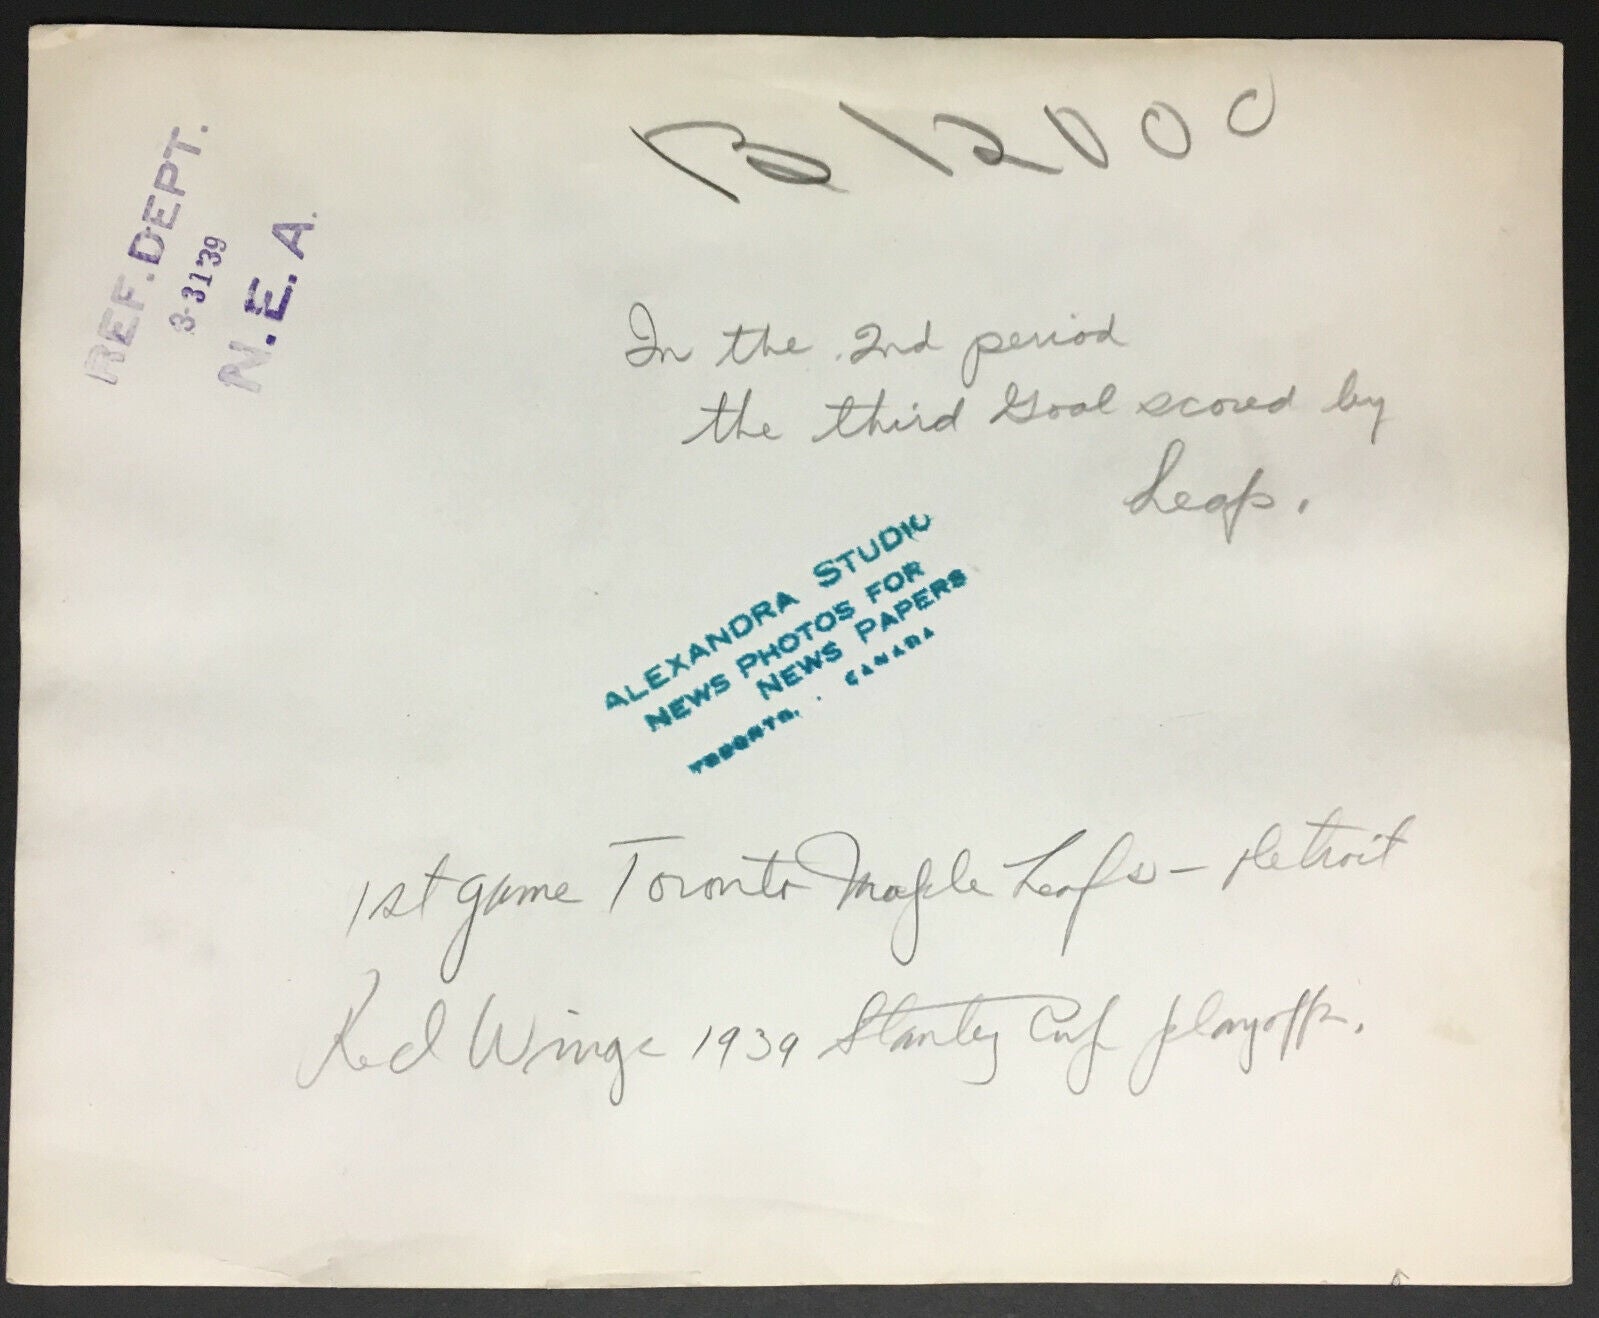 B 12000
REF. DEPT.
3-31 39
N. E. A.
In the 2nd period
the third Goal scored by
Leafs.
ALEXANDRA STUDIO
NEWS PHOTOS FOR
NEWS PAPERS
TORONTO. CANADA
1st game Toronto Maple Leafs - Detroit
Red Wings 1939 Stanley Cup playoffs.